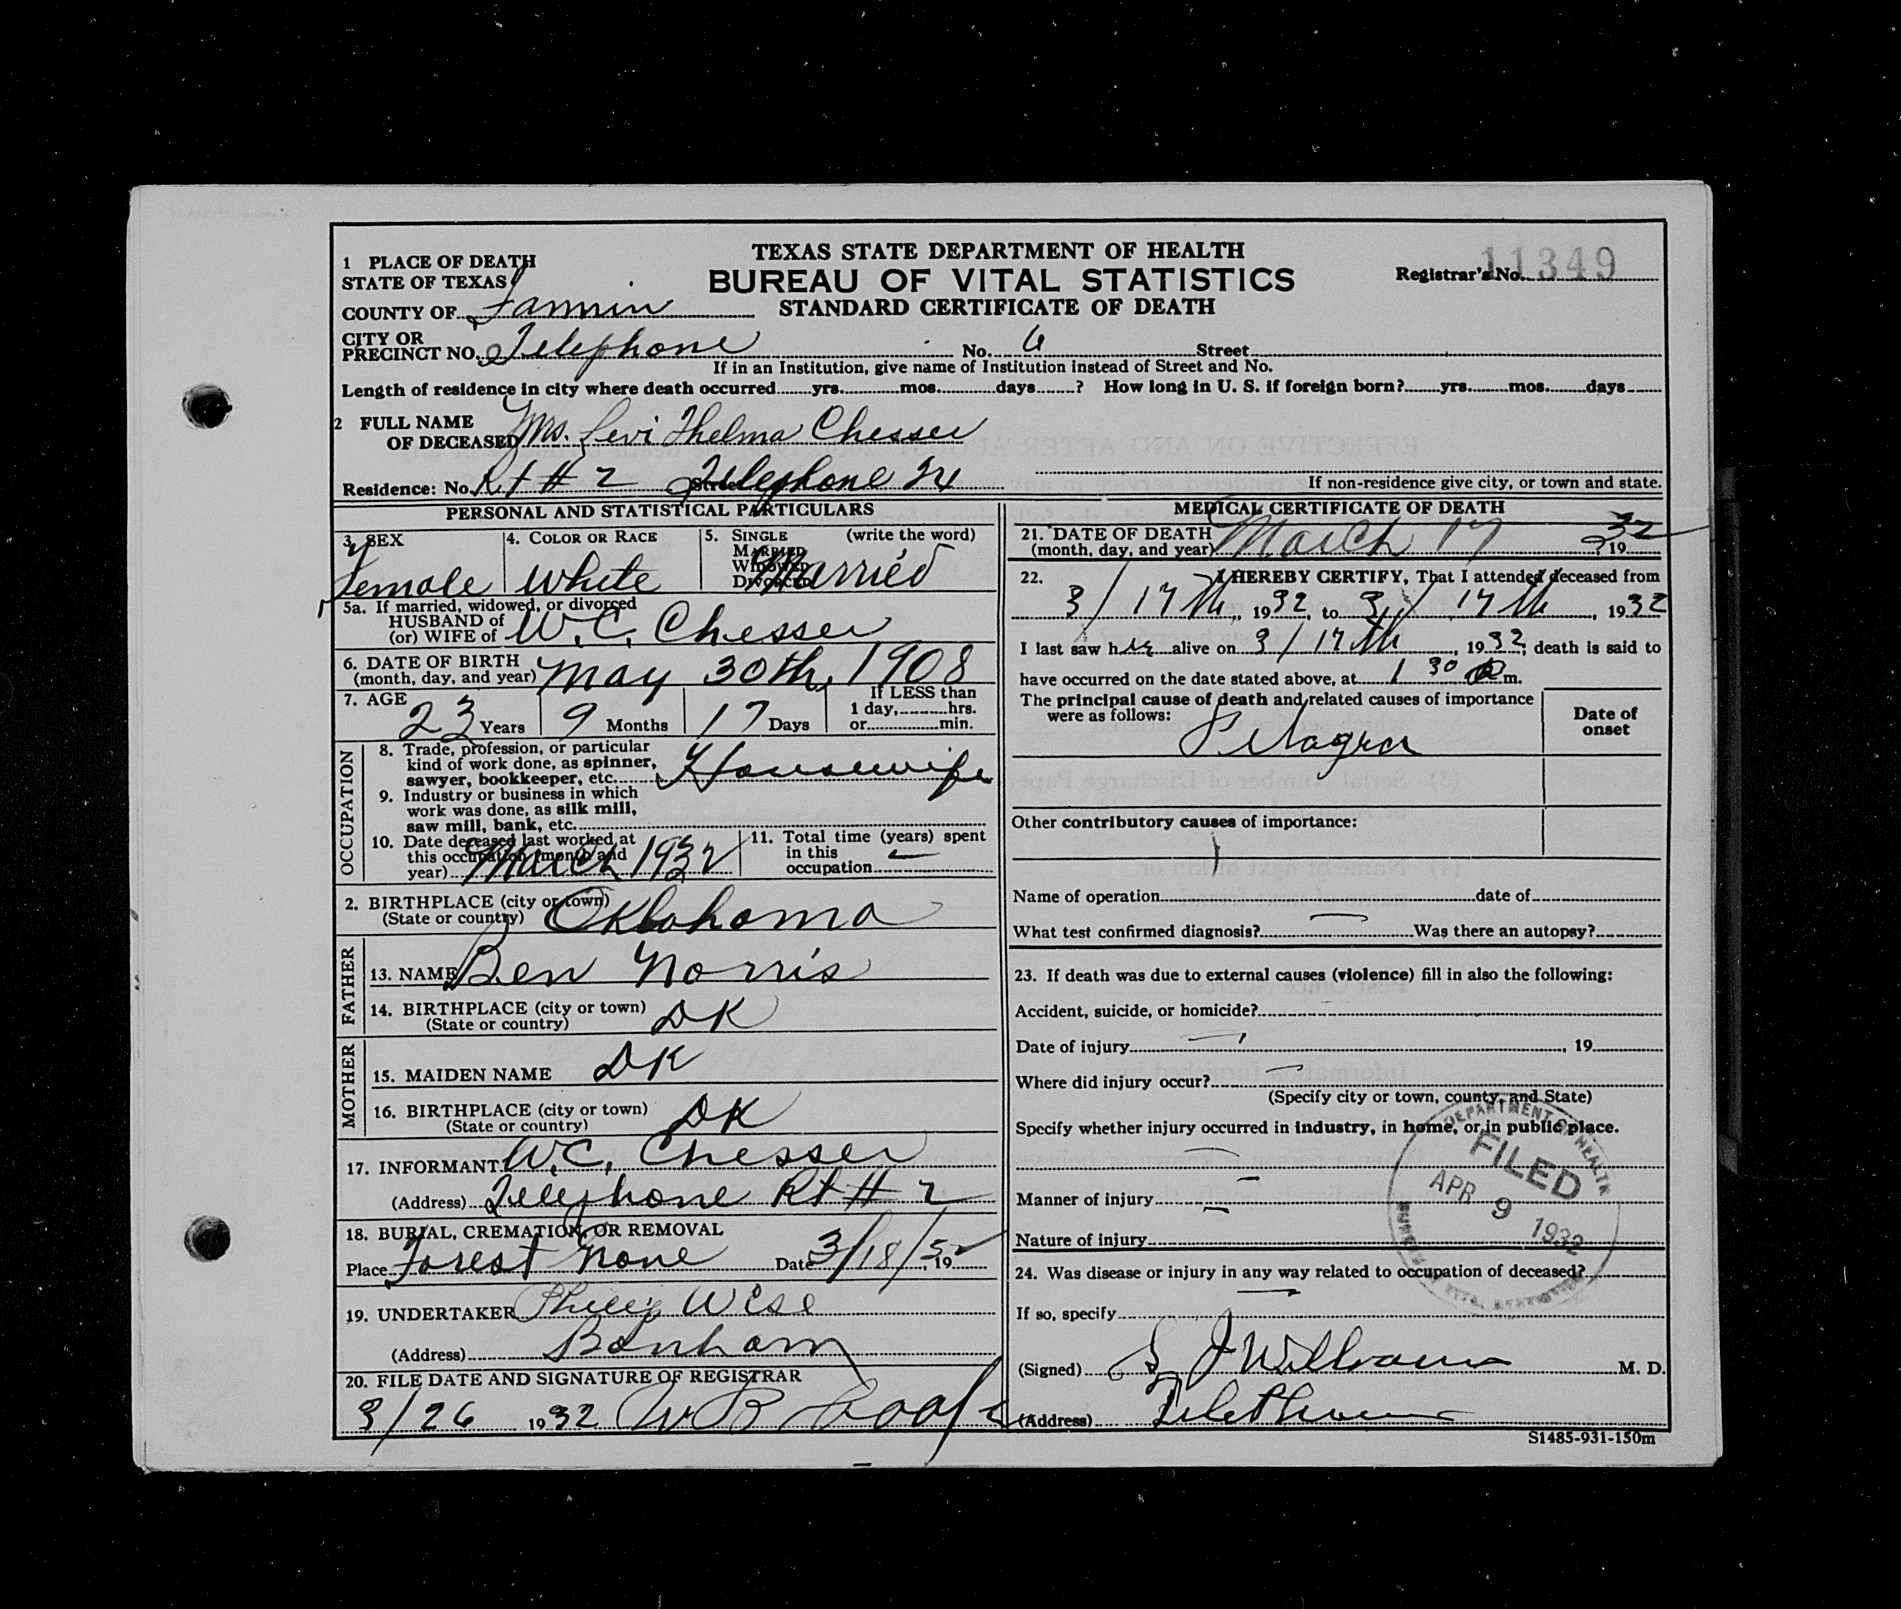 TEXAS STATE DEPARTMENT OF HEALTH
BUREAU OF VITAL STATISTICS
STANDARD CERTIFICATE OF DEATH
Registrar's No. 11349
1 PLACE OF DEATH
STATE OF TEXAS
COUNTY OF Fannin
CITY OR
PRECINCT NO. Telephone No. 6 Street
If in an Institution, give name of Institution instead of Street and No.
Length of residence in city where death occurred yrs. mos. days ? How long in U. S. if foreign born? yrs. mos. days
2 FULL NAME
OF DECEASED Mrs. Levi Thelma Chesser
Residence: No. Rt # 2 Street Telephone Tx
If non-residence give city, or town and state.
PERSONAL AND STATISTICAL PARTICULARS
3. SEX
Female
4. COLOR OR RACE
White
5. SINGLE
MARRIED
WIDOWED
DIVORCED
(write the word)
Married
5a. If married, widowed, or divorced
HUSBAND of
(or) WIFE of W. C. Chesser
6. DATE OF BIRTH
(month, day, and year) May 30th, 1908
7. AGE
23 Years 9 Months 17 Days
If LESS than
1 day, hrs.
or min.
OCCUPATION
8. Trade, profession, or particular
kind of work done, as spinner,
sawyer, bookkeeper, etc. Housewife
9. Industry or business in which
work was done, as silk mill,
saw mill, bank, etc.
10. Date deceased last worked at
this occupation (month and
year) March 1932
11. Total time (years) spent
in this
occupation
2. BIRTHPLACE (city or town)
(State or country) Oklahoma
FATHER
13. NAME Ben Norris
14. BIRTHPLACE (city or town)
(State or country) DK
MOTHER
15. MAIDEN NAME DK
16. BIRTHPLACE (city or town)
(State or country) DK
17. INFORMANT W. C. Chesser
(Address) Telephone Rt # 2
18. BURIAL, CREMATION, OR REMOVAL
Place Forest Date 3/18/32, 19
19. UNDERTAKER Wise
(Address) Bonham
20. FILE DATE AND SIGNATURE OF REGISTRAR
3/26 1932 W B
MEDICAL CERTIFICATE OF DEATH
21. DATE OF DEATH
(month, day, and year) March 17, 1932
22. I HEREBY CERTIFY, That I attended deceased from
3/17th, 1932, to 3/17th, 1932
I last saw her alive on 3/17th, 1932, death is said to
have occurred on the date stated above, at 1 30 m.
The principal cause of death and related causes of importance
were as follows:
Date of
onset
Pelagra
Other contributory causes of importance:
Name of operation date of
What test confirmed diagnosis? Was there an autopsy?
23. If death was due to external causes (violence) fill in also the following:
Accident, suicide, or homicide?
Date of injury , 19
Where did injury occur?
(Specify city or town, county, and State)
Specify whether injury occurred in industry, in home, or in public place.
Manner of injury
Nature of injury
24. Was disease or injury in any way related to occupation of deceased?
If so, specify
(Signed) J Williams M. D.
(Address) Telephone
DEPARTMENT OF HEALTH
FILED
APR 9 1932
S1485-931-150m